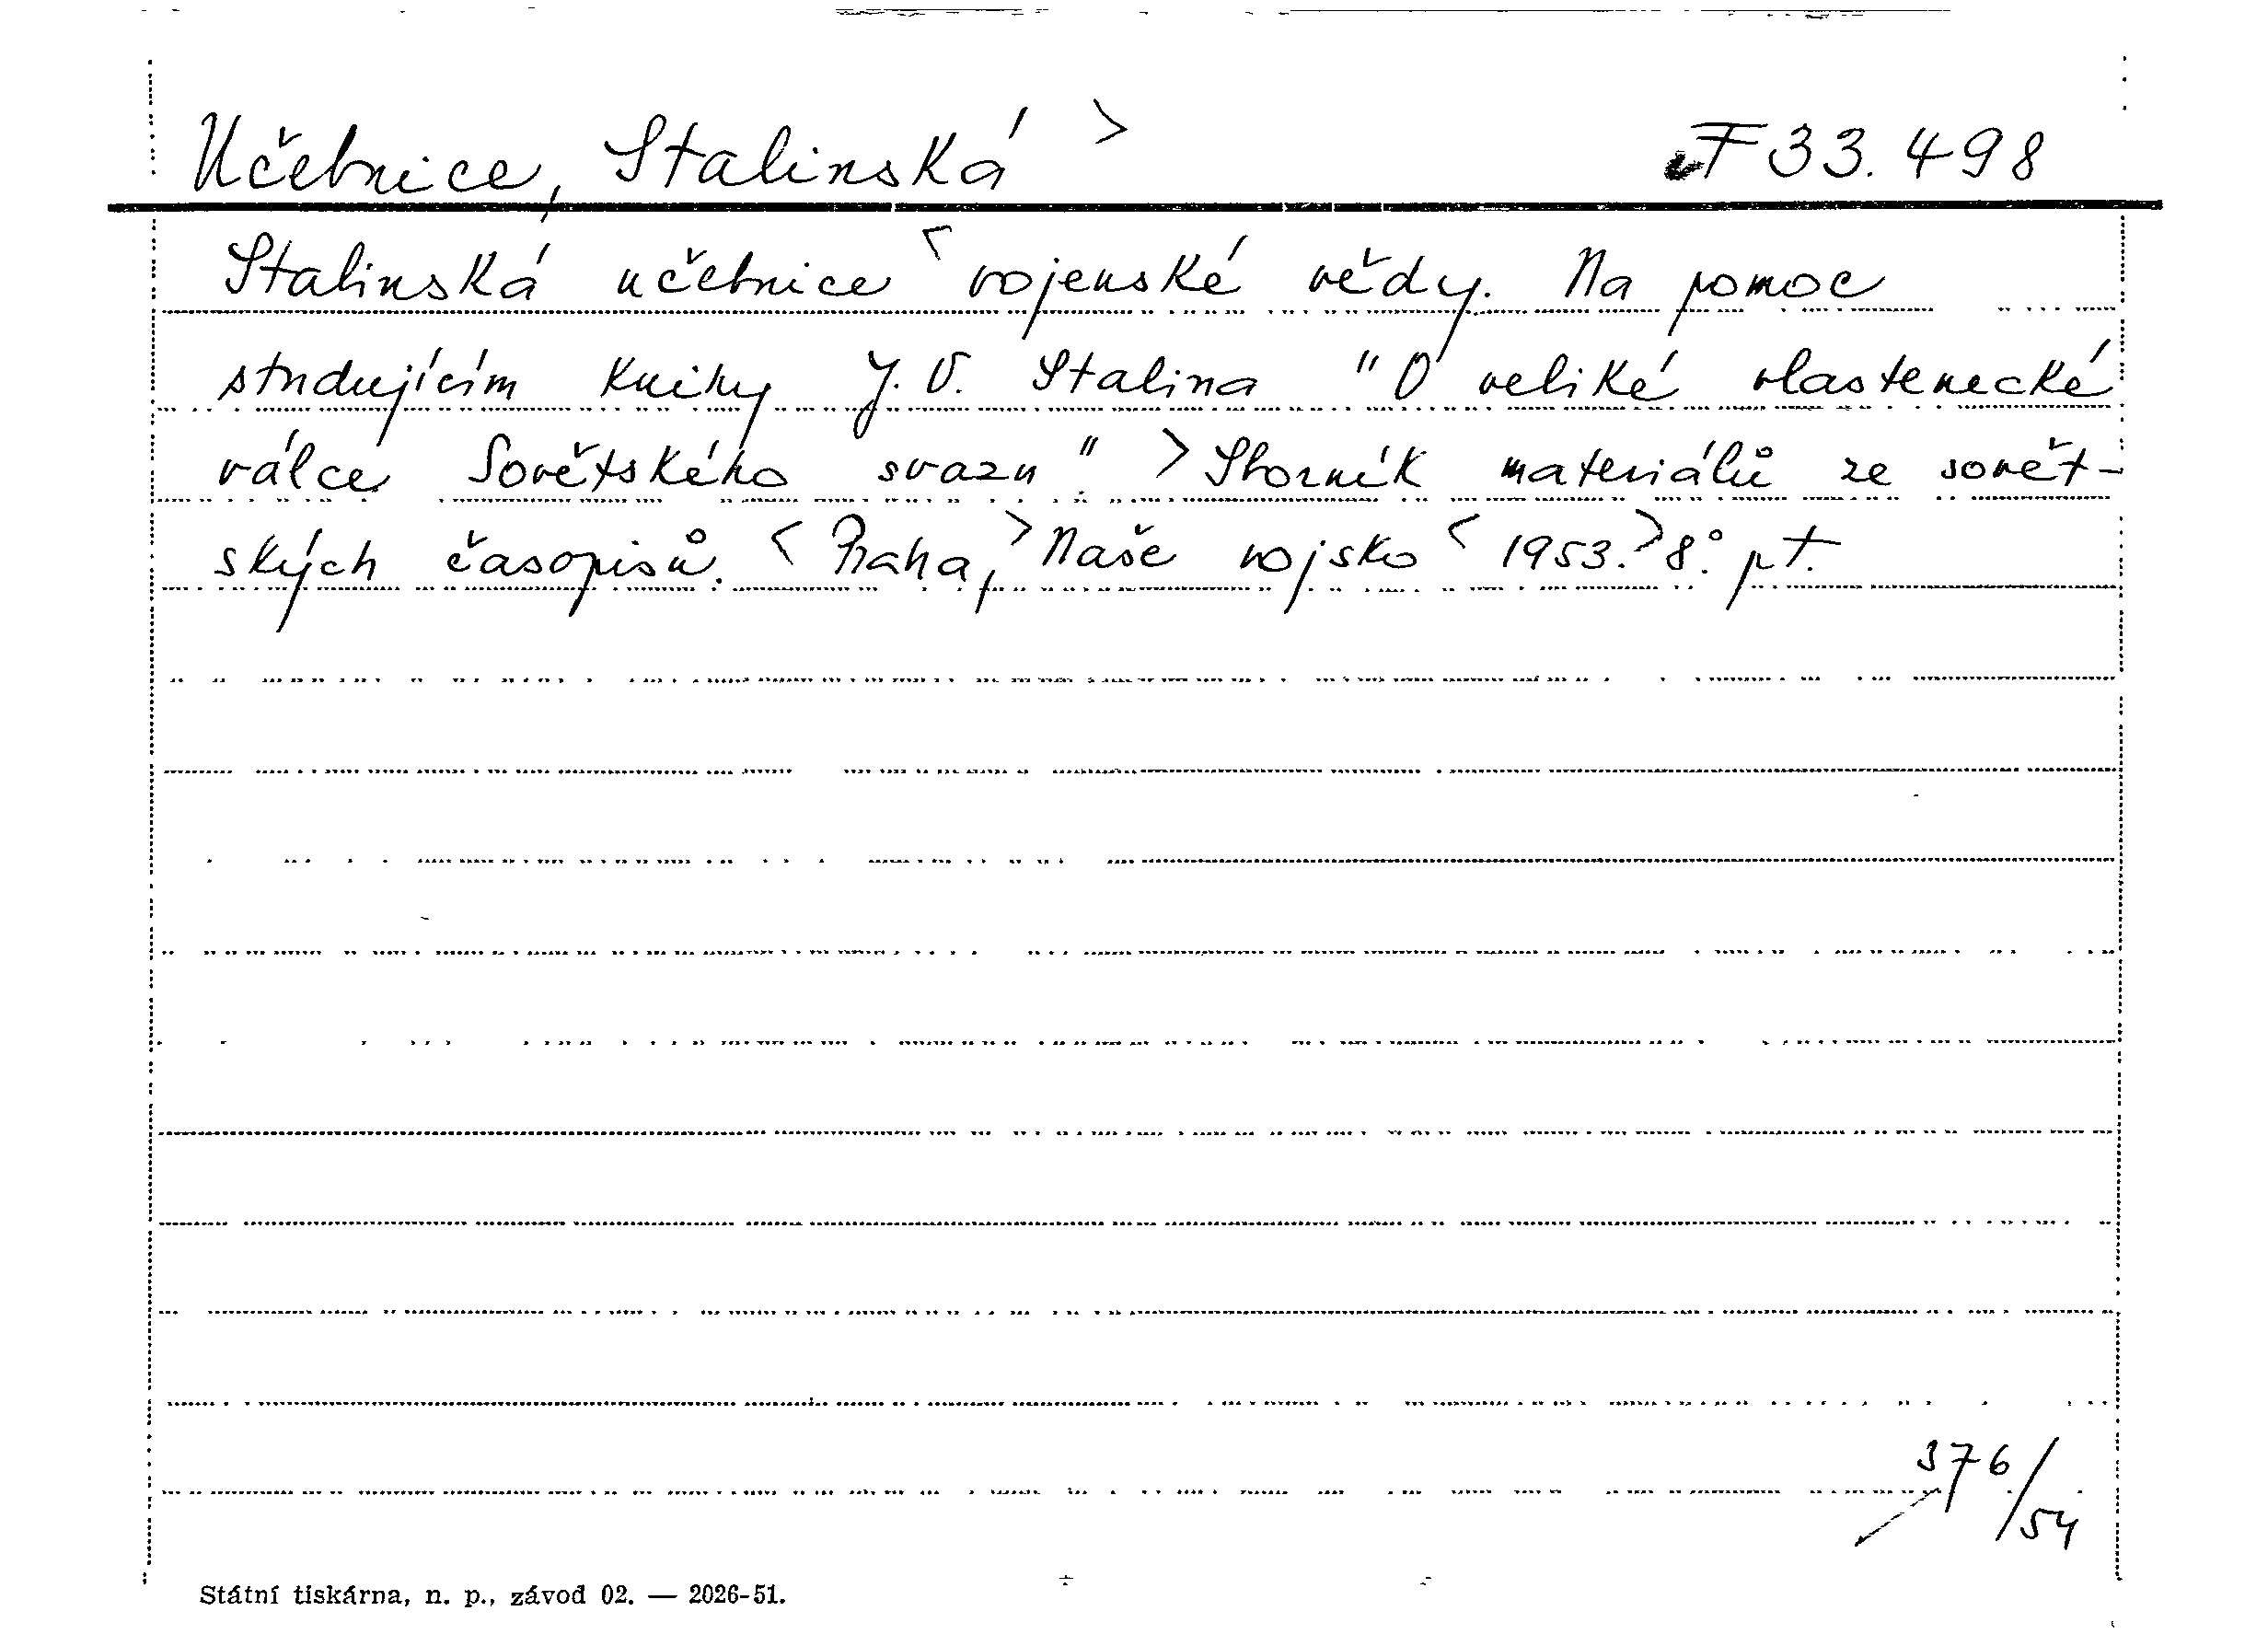 Učebnice, Stalinská > F 33.498
Stalinská učebnice < vojenské vědy. Na pomoc
studujícím knihy J. V. Stalina "O veliké vlastenecké
válce Sovětského svazu". > Sborník materiálů ze sovět-
ských časopisů. < Praha, > Naše vojsko < 1953. > 8°. pt.
376/54
Státní tiskárna, n. p., závod 02. — 2026-51.